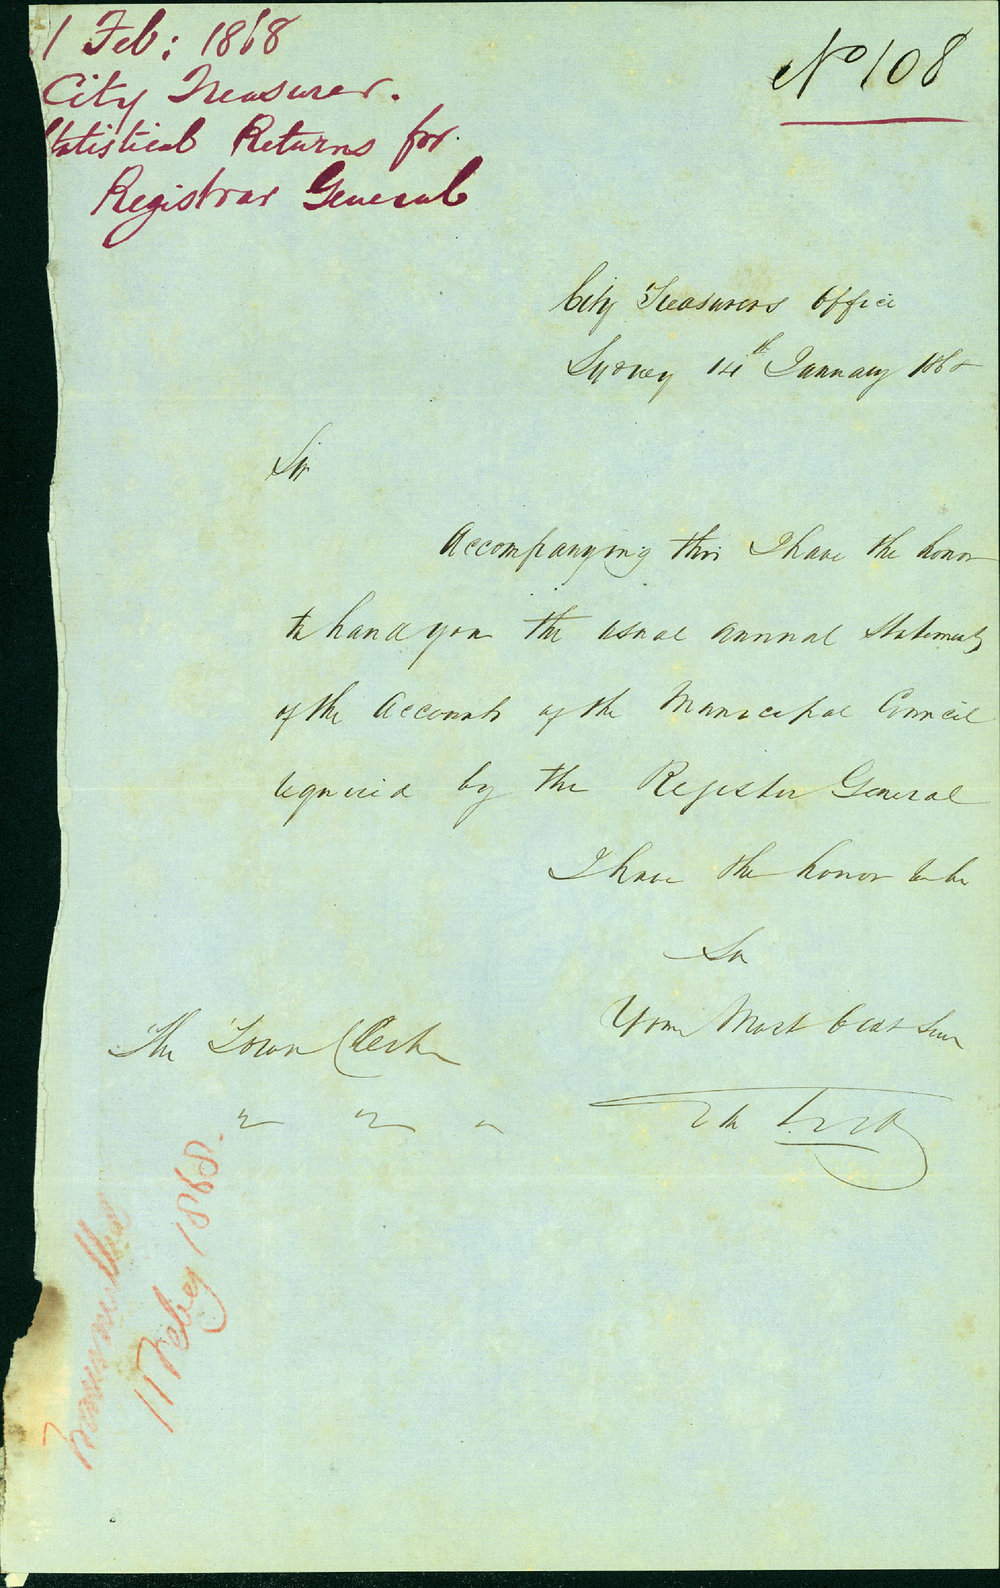 1 Feb: 1868
City Treasurer.
Statistical Returns for
Registrar General
No 108
City Treasurers Office
Sydney 14th January 1868
Sir
Accompanying this I have the honor
to hand you the usual annual Statements
of the Accounts of the Municipal Council
required by the Register General
I have the honor to be
Sir
Your Most Obdt Serv
The Town Clerk
" " "
Transmitted
11 Feby 1868.